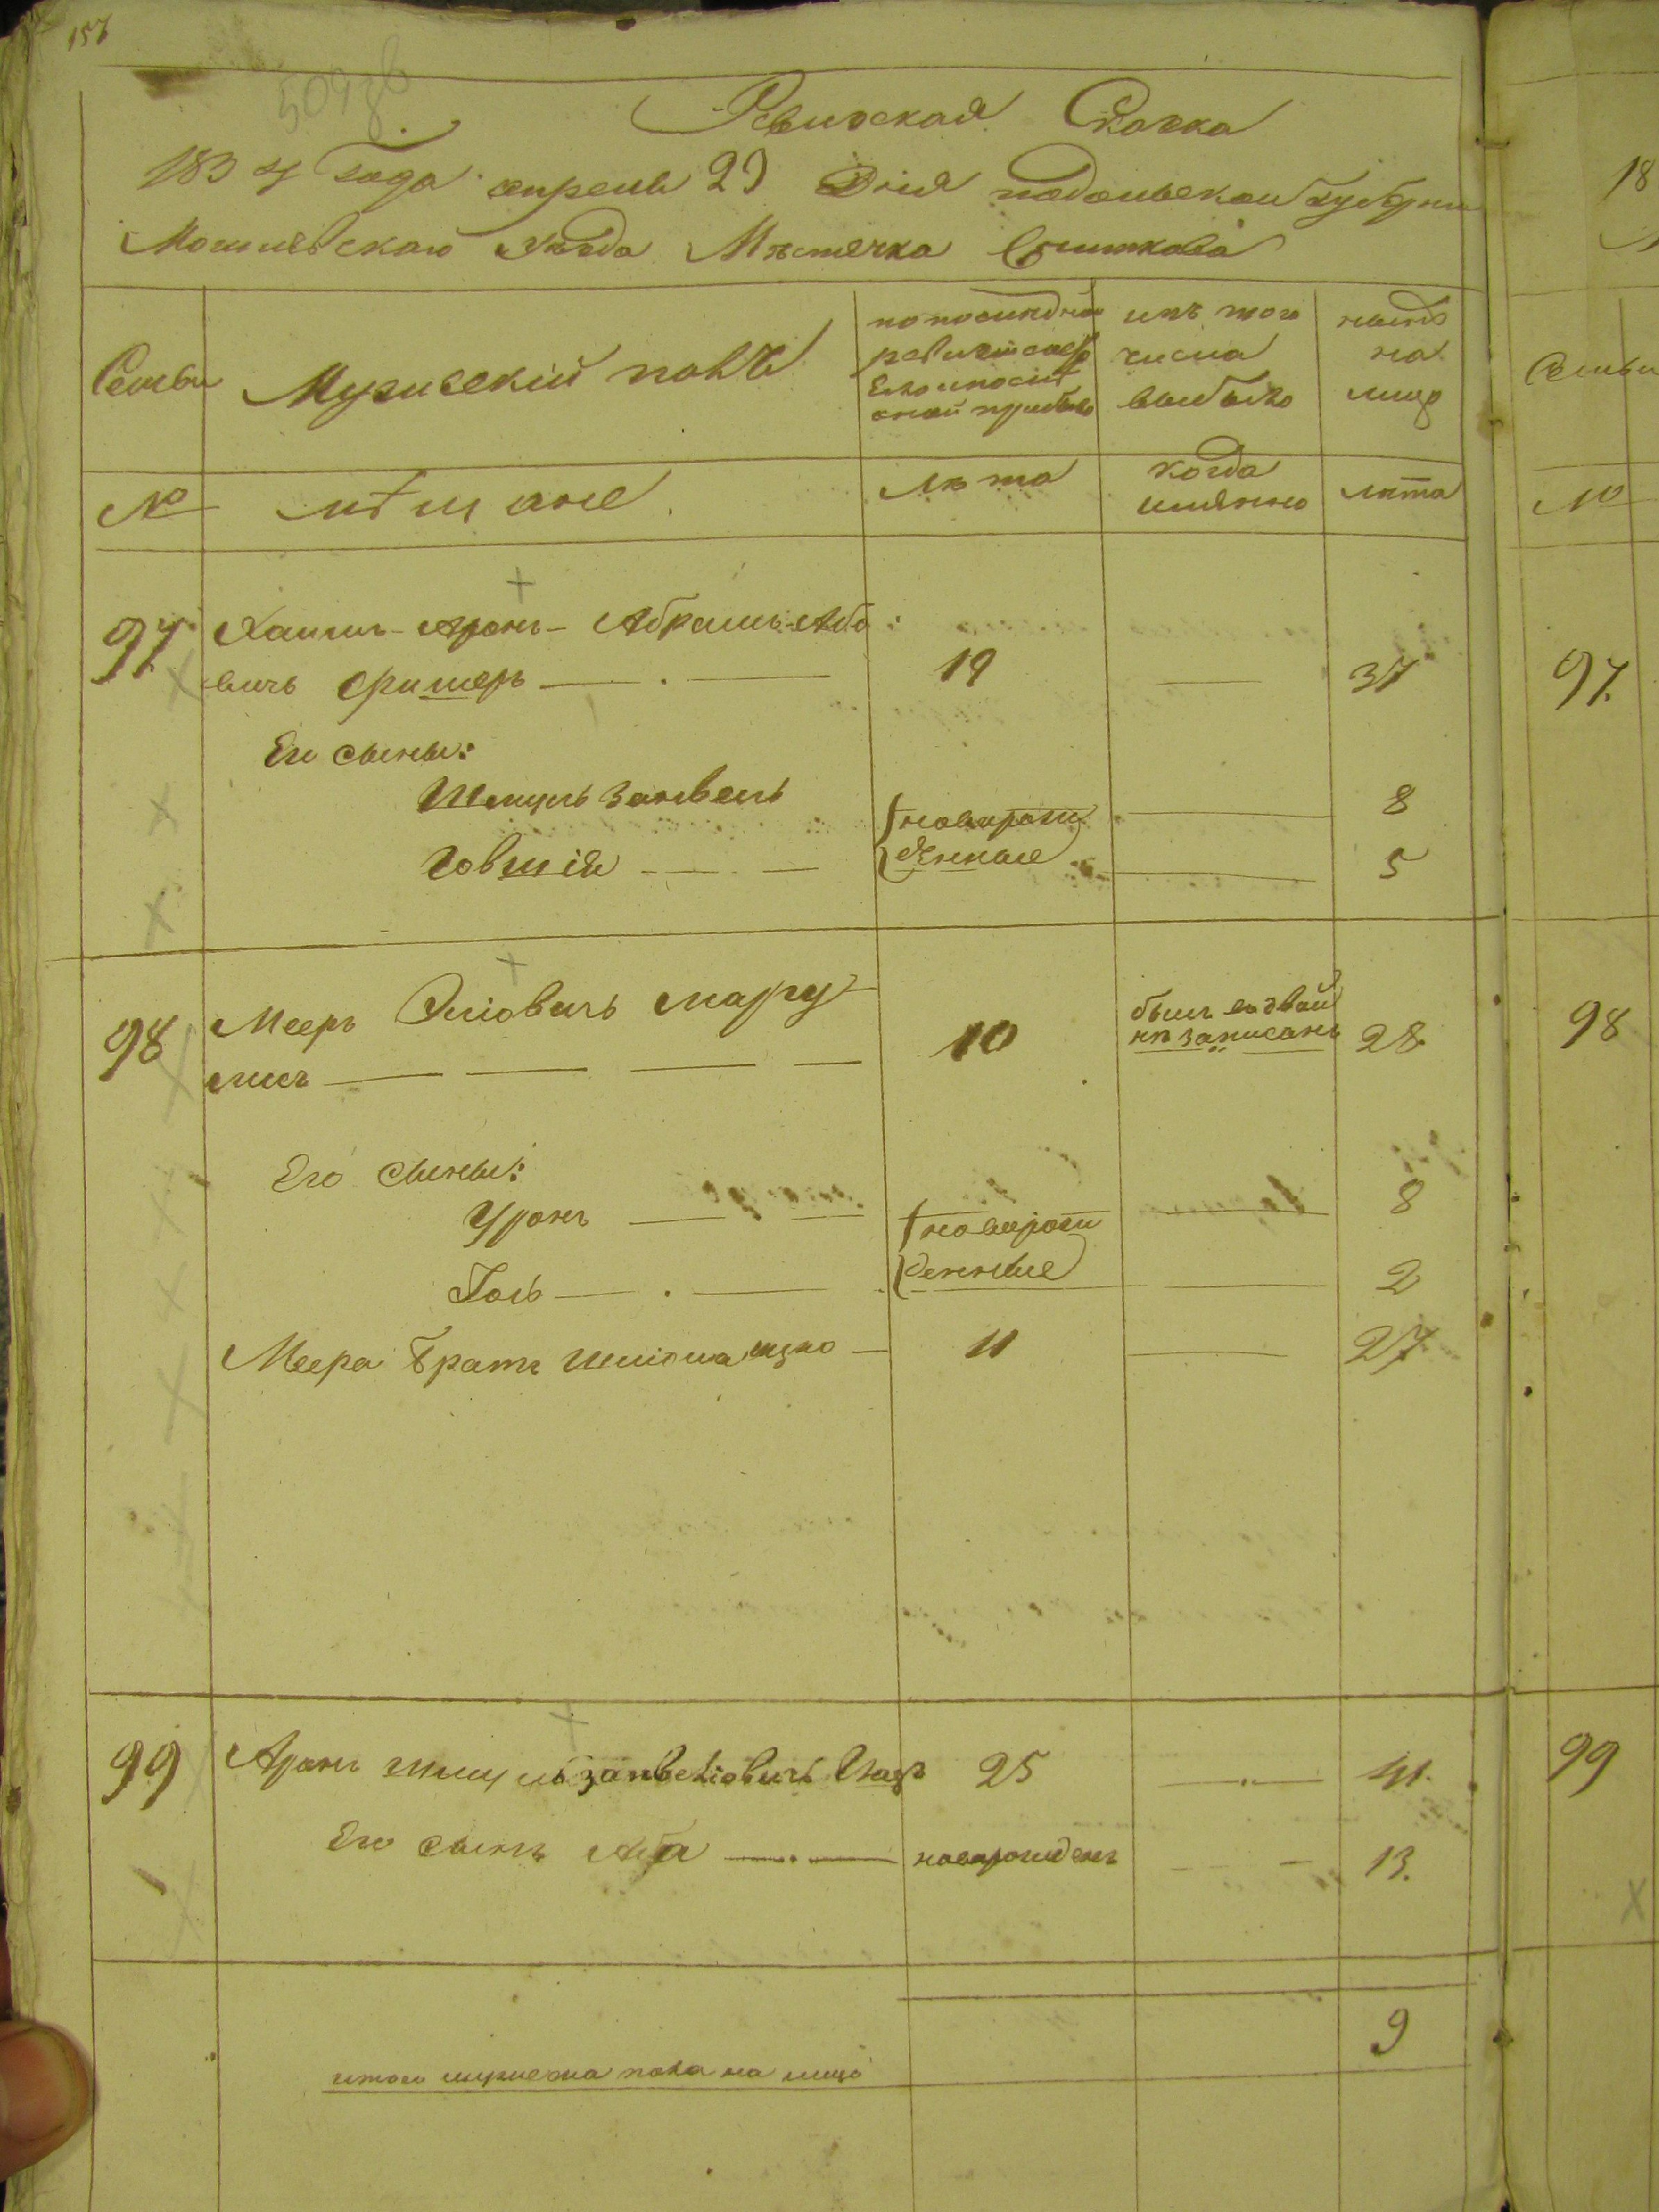 157
Ревижская Сказка
1834 Года апреля 23 Дня подольской Губернии
Могилевскаго уѣзда Мѣстечка Сниткова
Семьи
Мужескій полъ
по последней
ревизіи состо
яло и после
оной прибыло
изъ того
числа
выбыло
нынѣ
на
лицо
№
мѣщане
лѣта
когда
имянно
лѣта
97
Хаимъ-Аронъ-Абрамъ-Або
вичъ Фримеръ
19
37
Его сыны:
Шмуль Занвель
новорож
8
Іовшія
денные
5
98
Мееръ Эліовичъ Маргу
лисъ
10
былъ
не записанъ
28
Его сыны:
Уронъ
новорож
8
Іось
денные
2
Меера братъ Шліома
11
27
99
Аронъ Шмуль Занвеліовичъ
25
41.
Его сынъ Аба
новорожденъ
13.
9
итого мужеска пола на лицо
18
Семьи
№
97.
98
99